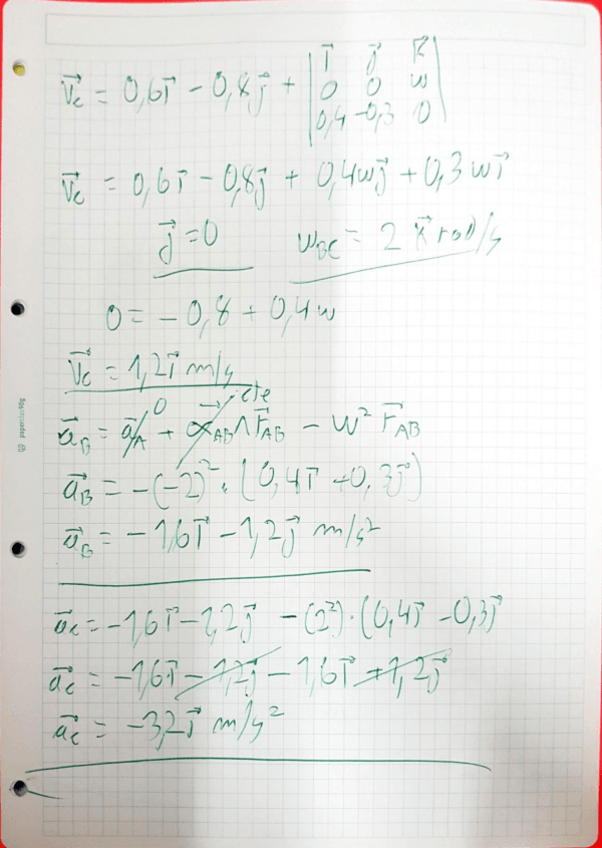 v⃗c = 0,6i⃗ - 0,8j⃗ + | i⃗ j⃗ k⃗ |
| 0 0 w |
| 0,4 -0,3 0 |
v⃗c = 0,6i⃗ - 0,8j⃗ + 0,4wj⃗ + 0,3wi⃗
j⃗ = 0 wBC = 2 k⃗ rad/s
0 = - 0,8 + 0,4w
v⃗c = 1,2i⃗ m/s
a⃗B = a⃗A 0 + α⃗AB cte ∧ r⃗AB - w² r⃗AB
a⃗B = -(-2)² · (0,4i⃗ + 0,3j⃗)
a⃗B = - 1,6i⃗ - 1,2j⃗ m/s²
a⃗c = -1,6i⃗ - 1,2j⃗ - (2²) · (0,4i⃗ - 0,3j⃗
a⃗c = -1,6i⃗ - 1,2j⃗ - 1,6i⃗ + 1,2j⃗
a⃗c = -3,2i⃗ m/s²